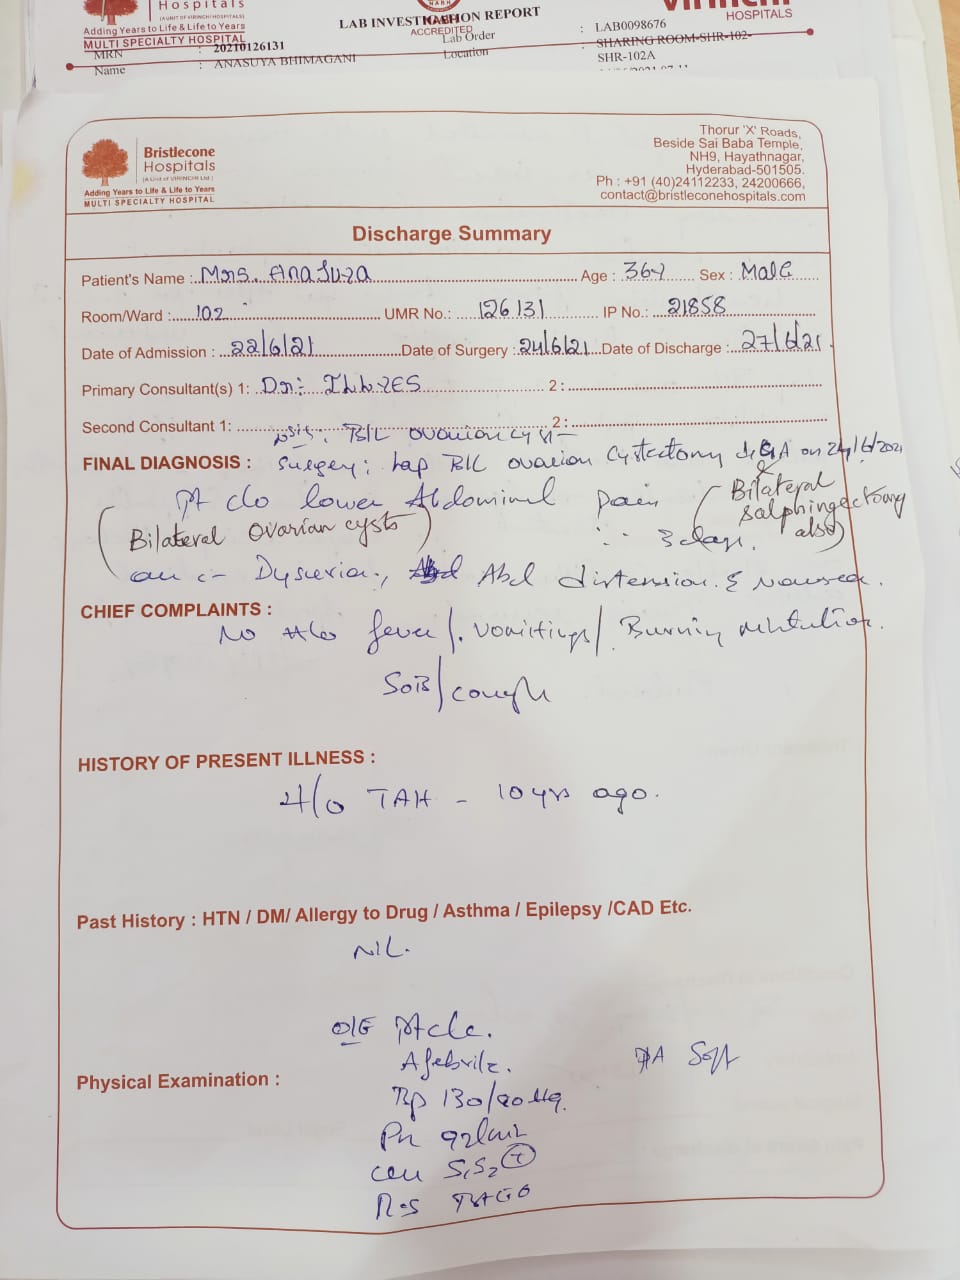 Hospitals
(A UNIT OF VIRINCHI HOSPITALS)
Adding Years to Life & Life to Years
MULTI SPECIALTY HOSPITAL
NABH
ACCREDITED
LAB INVESTIGATION REPORT
HOSPITALS
MRN : 20210126131
Lab Order : LAB0098676
Name : ANASUYA BHIMAGANI
Location : SHARING ROOM-SHR-102-
SHR-102A
Bristlecone
Hospitals
(A Unit of VIRINCHI Ltd.)
Adding Years to Life & Life to Years
MULTI SPECIALTY HOSPITAL
Thorur 'X' Roads,
Beside Sai Baba Temple,
NH9, Hayathnagar,
Hyderabad-501505.
Ph : +91 (40)24112233, 24200666,
contact@bristleconehospitals.com
Discharge Summary
Patient's Name : Mrs. Anasuya Age : 36y Sex : Male
Room/Ward : 102 UMR No.: 126131 IP No.: 21858
Date of Admission : 22/6/21 Date of Surgery : 24/6/21 Date of Discharge : 27/6/21
Primary Consultant(s) 1: Dr: 2:
Second Consultant 1: 2:
B/L ovarian cyst
FINAL DIAGNOSIS : Surgery: Lap B/L ovarian cystectomy GA on 24/6/2021
Pt c/o lower Abdominal pain (Bilateral salphingectomy also)
(Bilateral ovarian cysts) 3 days.
Dysuria, Abd distension & nausea.
CHIEF COMPLAINTS :
No H/o fever/. vomitings/ Burning
SOB/cough
HISTORY OF PRESENT ILLNESS :
H/o TAH - 10 yrs ago.
Past History : HTN / DM/ Allergy to Drug / Asthma / Epilepsy /CAD Etc.
NIL.
O/E Pt c/c.
Afebrile. P/A Soft
Physical Examination :
Bp 130/90
PR 92/min
S1S2 +